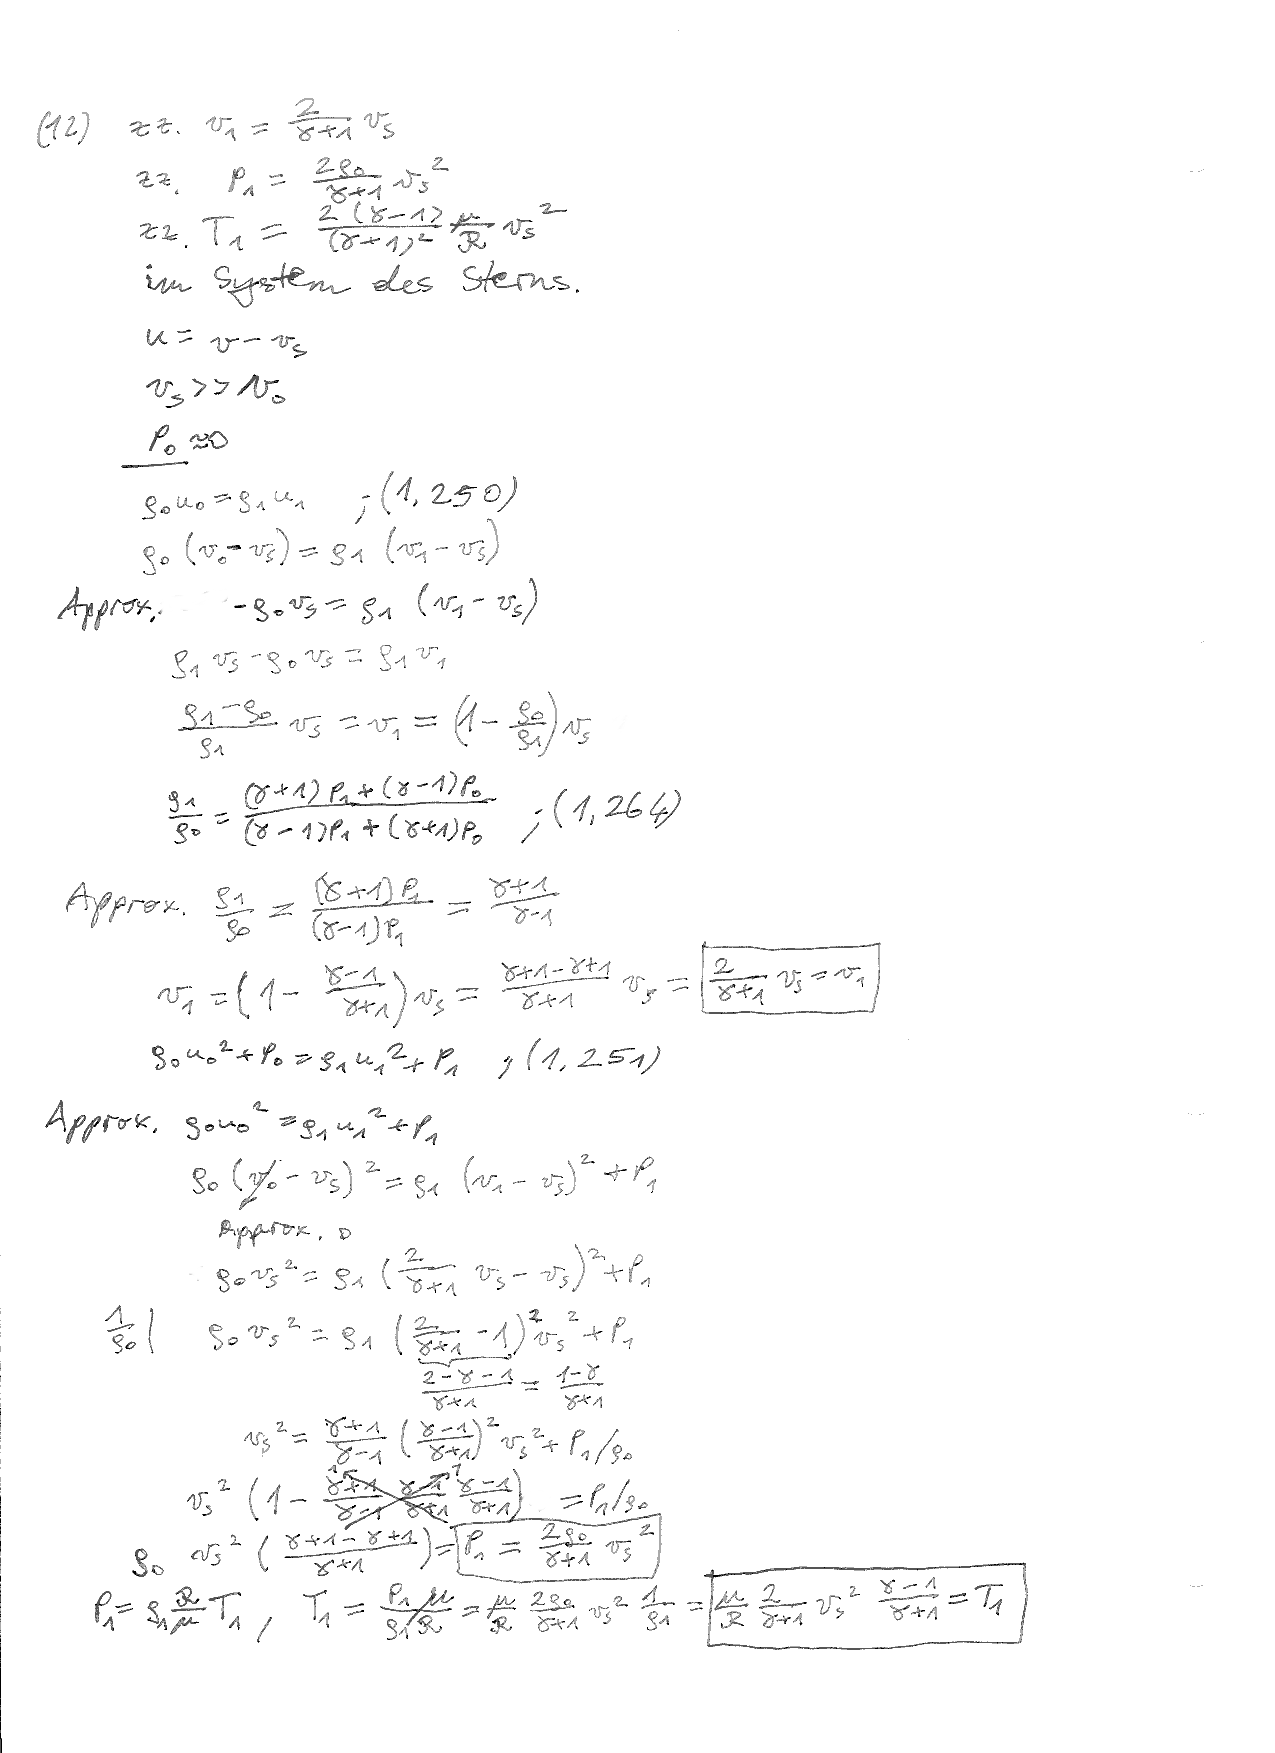 (12) zz. v₁ = 2/(γ+1) vₛ
zz. P₁ = 2ρ₀/(γ+1) vₛ²
zz. T₁ = 2(γ-1)/(γ+1)² μ/ℛ vₛ²
im System des Sterns.
u = v - vₛ
vₛ >> v₀
P₀ ≈ 0
ρ₀u₀ = ρ₁u₁ ; (1,250)
ρ₀ (v₀ - vₛ) = ρ₁ (v₁ - vₛ)
Approx. -ρ₀vₛ = ρ₁ (v₁ - vₛ)
ρ₁vₛ - ρ₀vₛ = ρ₁v₁
(ρ₁-ρ₀)/ρ₁ vₛ = v₁ = (1 - ρ₀/ρ₁) vₛ
ρ₁/ρ₀ = ((γ+1)P₁ + (γ-1)P₀)/((γ-1)P₁ + (γ+1)P₀) ; (1,264)
Approx. ρ₁/ρ₀ = (γ+1)P₁/(γ-1)P₁ = (γ+1)/(γ-1)
v₁ = (1 - (γ-1)/(γ+1)) vₛ = (γ+1-γ+1)/(γ+1) vₛ = 2/(γ+1) vₛ = v₁
ρ₀u₀² + P₀ = ρ₁u₁² + P₁ ; (1,251)
Approx. ρ₀u₀² = ρ₁u₁² + P₁
ρ₀ (v₀ - vₛ)² = ρ₁ (v₁ - vₛ)² + P₁
Approx. 0
ρ₀vₛ² = ρ₁ (2/(γ+1) vₛ - vₛ)² + P₁
1/ρ₀ | ρ₀vₛ² = ρ₁ (2/(γ+1) - 1)² vₛ² + P₁
(2-γ-1)/(γ+1) = (1-γ)/(γ+1)
vₛ² = (γ+1)/(γ-1) ((γ-1)/(γ+1))² vₛ² + P₁/ρ₀
vₛ² (1 - (γ+1)/(γ-1) (γ-1)/(γ+1) (γ-1)/(γ+1)) = P₁/ρ₀
ρ₀ vₛ² ((γ+1-γ+1)/(γ+1)) = P₁ = 2ρ₀/(γ+1) vₛ²
P₁ = ρ₁ ℛ/μ T₁ , T₁ = P₁/ρ₁ μ/ℛ = μ/ℛ 2ρ₀/(γ+1) vₛ² 1/ρ₁ = μ/ℛ 2/(γ+1) vₛ² (γ-1)/(γ+1) = T₁